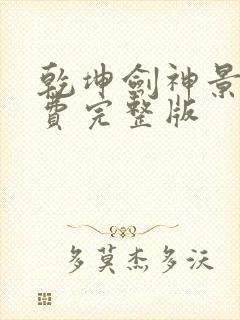 乾坤劍神景
費完整版
多莫杰多沃